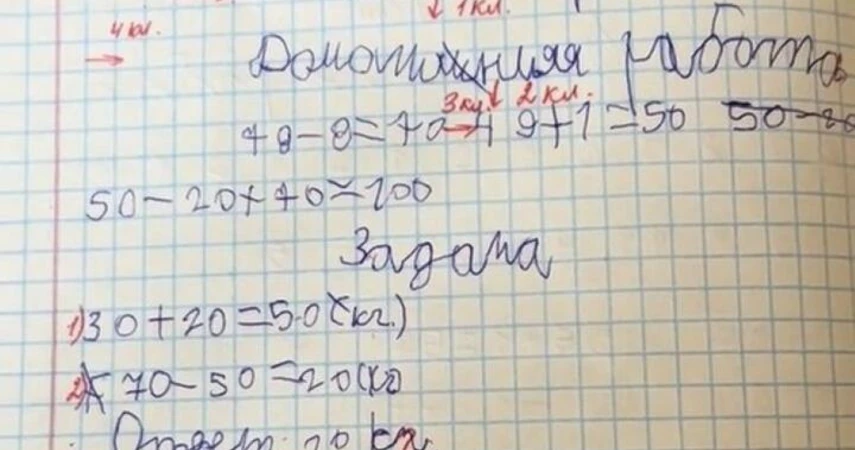 1 кл.
4 кл.
Домашняя работа
3 кл. 2 кл.
78-8=70 49+1=50 50-
50-20+70=100
Задача
1) 30+20=50 (кг.)
2) 70-50=20 (кг
Ответ: 20 кг